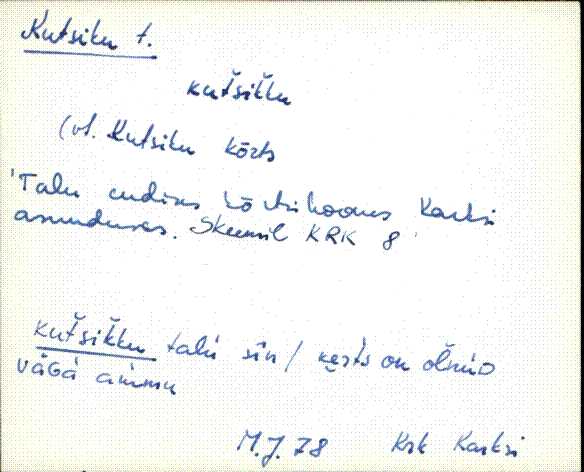 Kutsiku t.
kutšikku
(vt. Kutsiku kõrts
'Talu endises kõrtsihoones Karksi
asunduses. Skeemil KRK 8'
kutšikku talu sīn / kę̄rts on olnuD
väGä ammu
M.J. 78 Krk Karksi